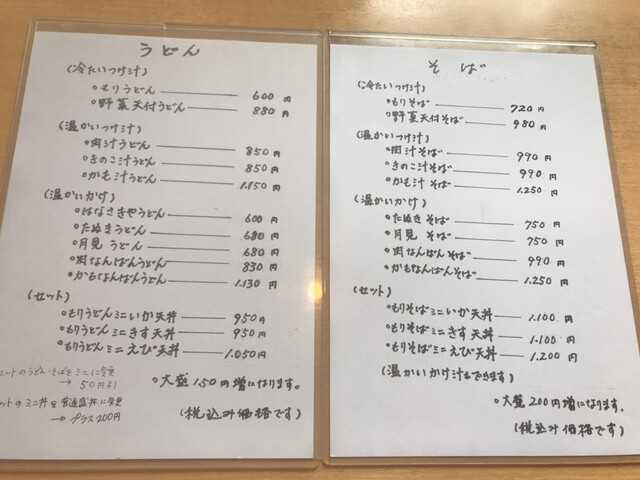 うどん
(冷たいつけ汁)
○もりうどん 600円
○野菜天付うどん 880円
(温かいつけ汁)
○肉汁うどん 850円
○きのこ汁うどん 850円
○かも汁うどん 1.150円
(温かいかけ)
○はなさきやうどん 600円
○たぬきうどん 680円
○月見うどん 680円
○肉なんばんうどん 830円
○かもなんばんうどん 1.130円
(セット)
○もりうどんミニいか天丼 950円
○もりうどんミニきす天丼 950円
○もりうどんミニえび天丼 1.050円
ットのうどん・そばをミニに変更
→ 50円引
ットのミニ丼を普通盛丼に変更
→ プラス200円
○大盛150円増になります。
(税込み価格です)
そば
(冷たいつけ汁)
○もりそば 720円
○野菜天付そば 980円
(温かいつけ汁)
○肉汁そば 990円
○きのこ汁そば 990円
○かも汁そば 1.250円
(温かいかけ)
○たぬきそば 750円
○月見そば 750円
○肉なんばんそば 990円
○かもなんばんそば 1.250円
(セット)
○もりそばミニいか天丼 1.100円
○もりそばミニきす天丼 1.100円
○もりそばミニえび天丼 1.200円
(温かいかけ汁もできます)
○大盛200円増になります。
(税込み価格です)